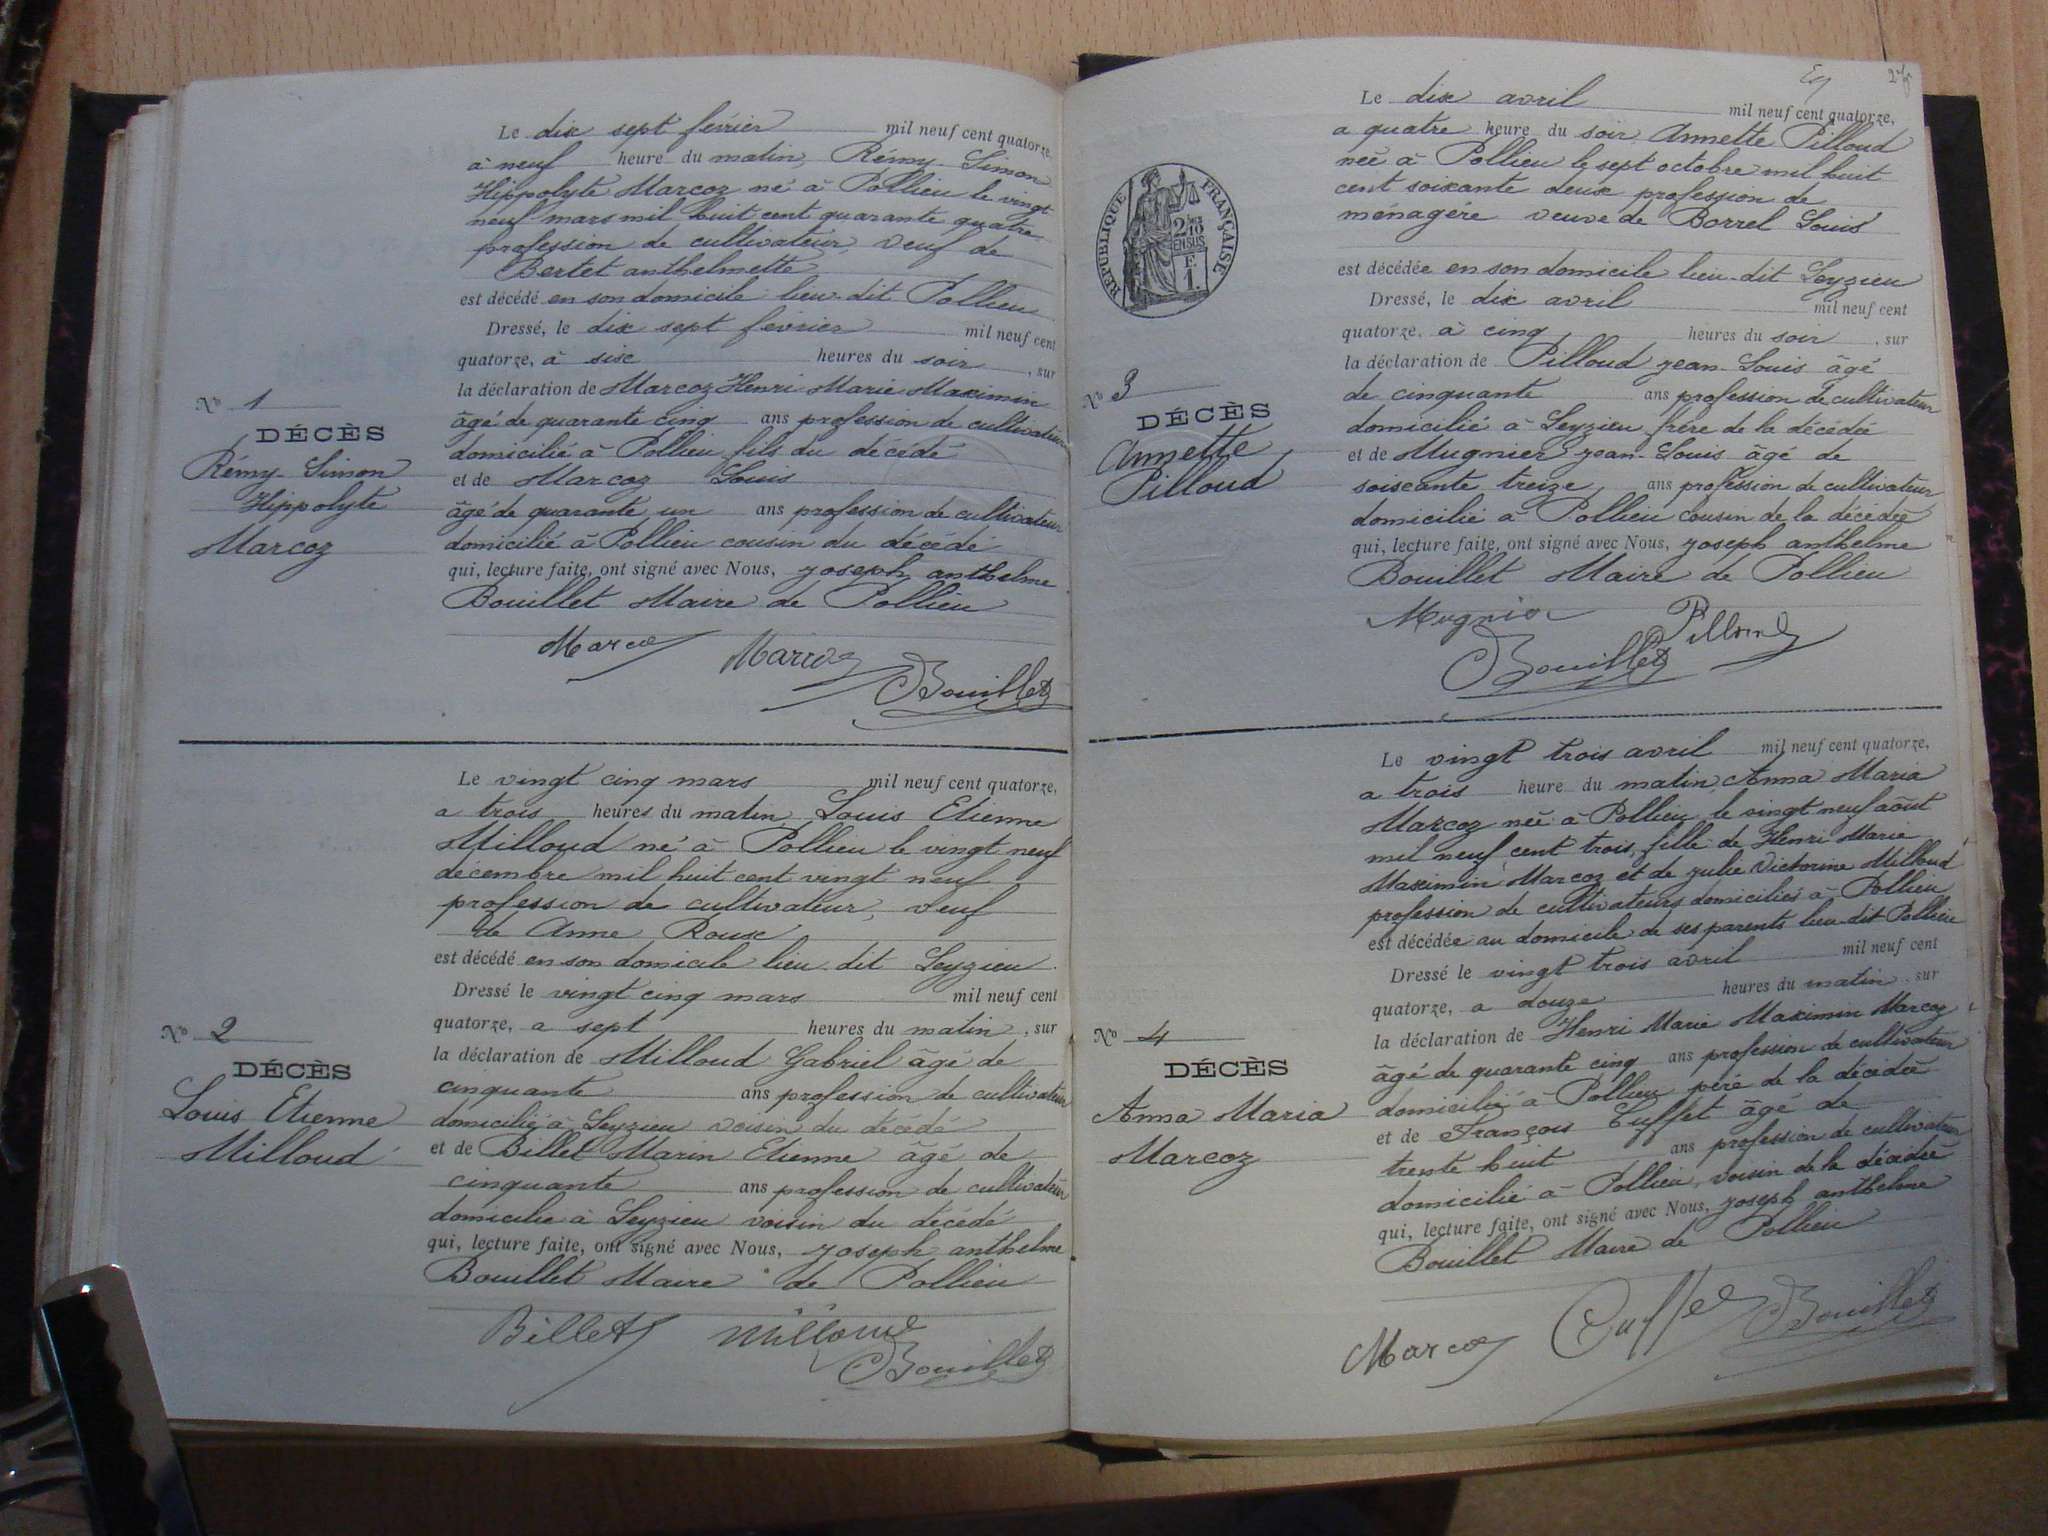 Le dix sept février mil neuf cent quatorze,
à neuf heure du matin, Rémy Simon
Hippolyte Marcoz né à Pollieu le vingt
neuf mars mil huit cent quarante quatre
profession de cultivateur, veuf de
Bertet anthelmette
est décédé en son domicile lieu-dit Pollieu
Dressé, le dix sept février mil neuf cent
quatorze, à six heures du soir, sur
la déclaration de Marcoz Henri Marie Maximin
âgé de quarante cinq ans profession de cultivateur
domicilié à Pollieu fils du décédé
et de Marcoz Louis
âgé de quarante un ans profession de cultivateur
domicilié à Pollieu cousin du décédé
qui, lecture faite, ont signé avec Nous, joseph anthelme
Bouillet Maire de Pollieu
Marcoz Marcoz
Bouillet
No 1
DÉCÈS
Rémy Simon
Hippolyte
Marcoz
Le vingt cinq mars mil neuf cent quatorze,
a trois heures du matin, Louis Etienne
Milloud né à Pollieu le vingt neuf
décembre mil huit cent vingt neuf
profession de cultivateur, veuf
de Anne Roux
est décédé en son domicile lieu dit Leyzieu
Dressé le vingt cinq mars mil neuf cent
quatorze, a sept heures du matin, sur
la déclaration de Milloud Gabriel âgé de
cinquante ans profession de cultivateur
domicilié à Leyzieu voisin du décédé
et de Billet Marin Etienne âgé de
cinquante ans profession de cultivateur
domicilié à Leyzieu voisin du décédé
qui, lecture faite, ont signé avec Nous, joseph anthelme
Bouillet Maire de Pollieu
Billet Milloud
Bouillet
No 2
DÉCÈS
Louis Etienne
Milloud
Le dix avril mil neuf cent quatorze,
a quatre heure du soir, Annette Pilloud
née à Pollieu le sept octobre mil huit
cent soixante deux profession de
ménagère veuve de Borrel Louis
est décédée en son domicile lieu-dit Leyzieu
Dressé, le dix avril mil neuf cent
quatorze, à cinq heures du soir, sur
la déclaration de Pilloud jean-Louis âgé
de cinquante ans profession de cultivateur
domicilié à Leyzieu, frère de la décédée
et de Mugnier jean-Louis âgé de
soixante treize ans profession de cultivateur
domicilié à Pollieu cousin de la décédée
qui, lecture faite, ont signé avec Nous, joseph anthelme
Bouillet Maire de Pollieu
Mugnier Pilloud
Bouillet
RÉPUBLIQUE FRANÇAISE
2/10
EN SUS
F.
1.
No 3
DÉCÈS
Annette
Pilloud
Le vingt trois avril mil neuf cent quatorze,
a trois heure du matin, Anna Maria
Marcoz née à Pollieu, le vingt neuf août
mil neuf cent trois, fille de Henri Marie
Maximin Marcoz et de julie Victorine Milloud
profession de cultivateurs domiciliés à Pollieu
est décédée au domicile de ses parents lieu-dit Pollieu
Dressé le vingt trois avril mil neuf cent
quatorze, a douze heures du matin, sur
la déclaration de Henri Marie Maximin Marcoz
âgé de quarante cinq ans profession de cultivateur
domicilié à Pollieu, père de la décédée
et de François Cuffet âgé de
trente huit ans profession de cultivateur
domicilié à Pollieu, voisin de la décédée
qui, lecture faite, ont signé avec Nous, joseph anthelme
Bouillet Maire de Pollieu
Marcoz Cuffet Bouillet
No 4
DÉCÈS
Anna Maria
Marcoz